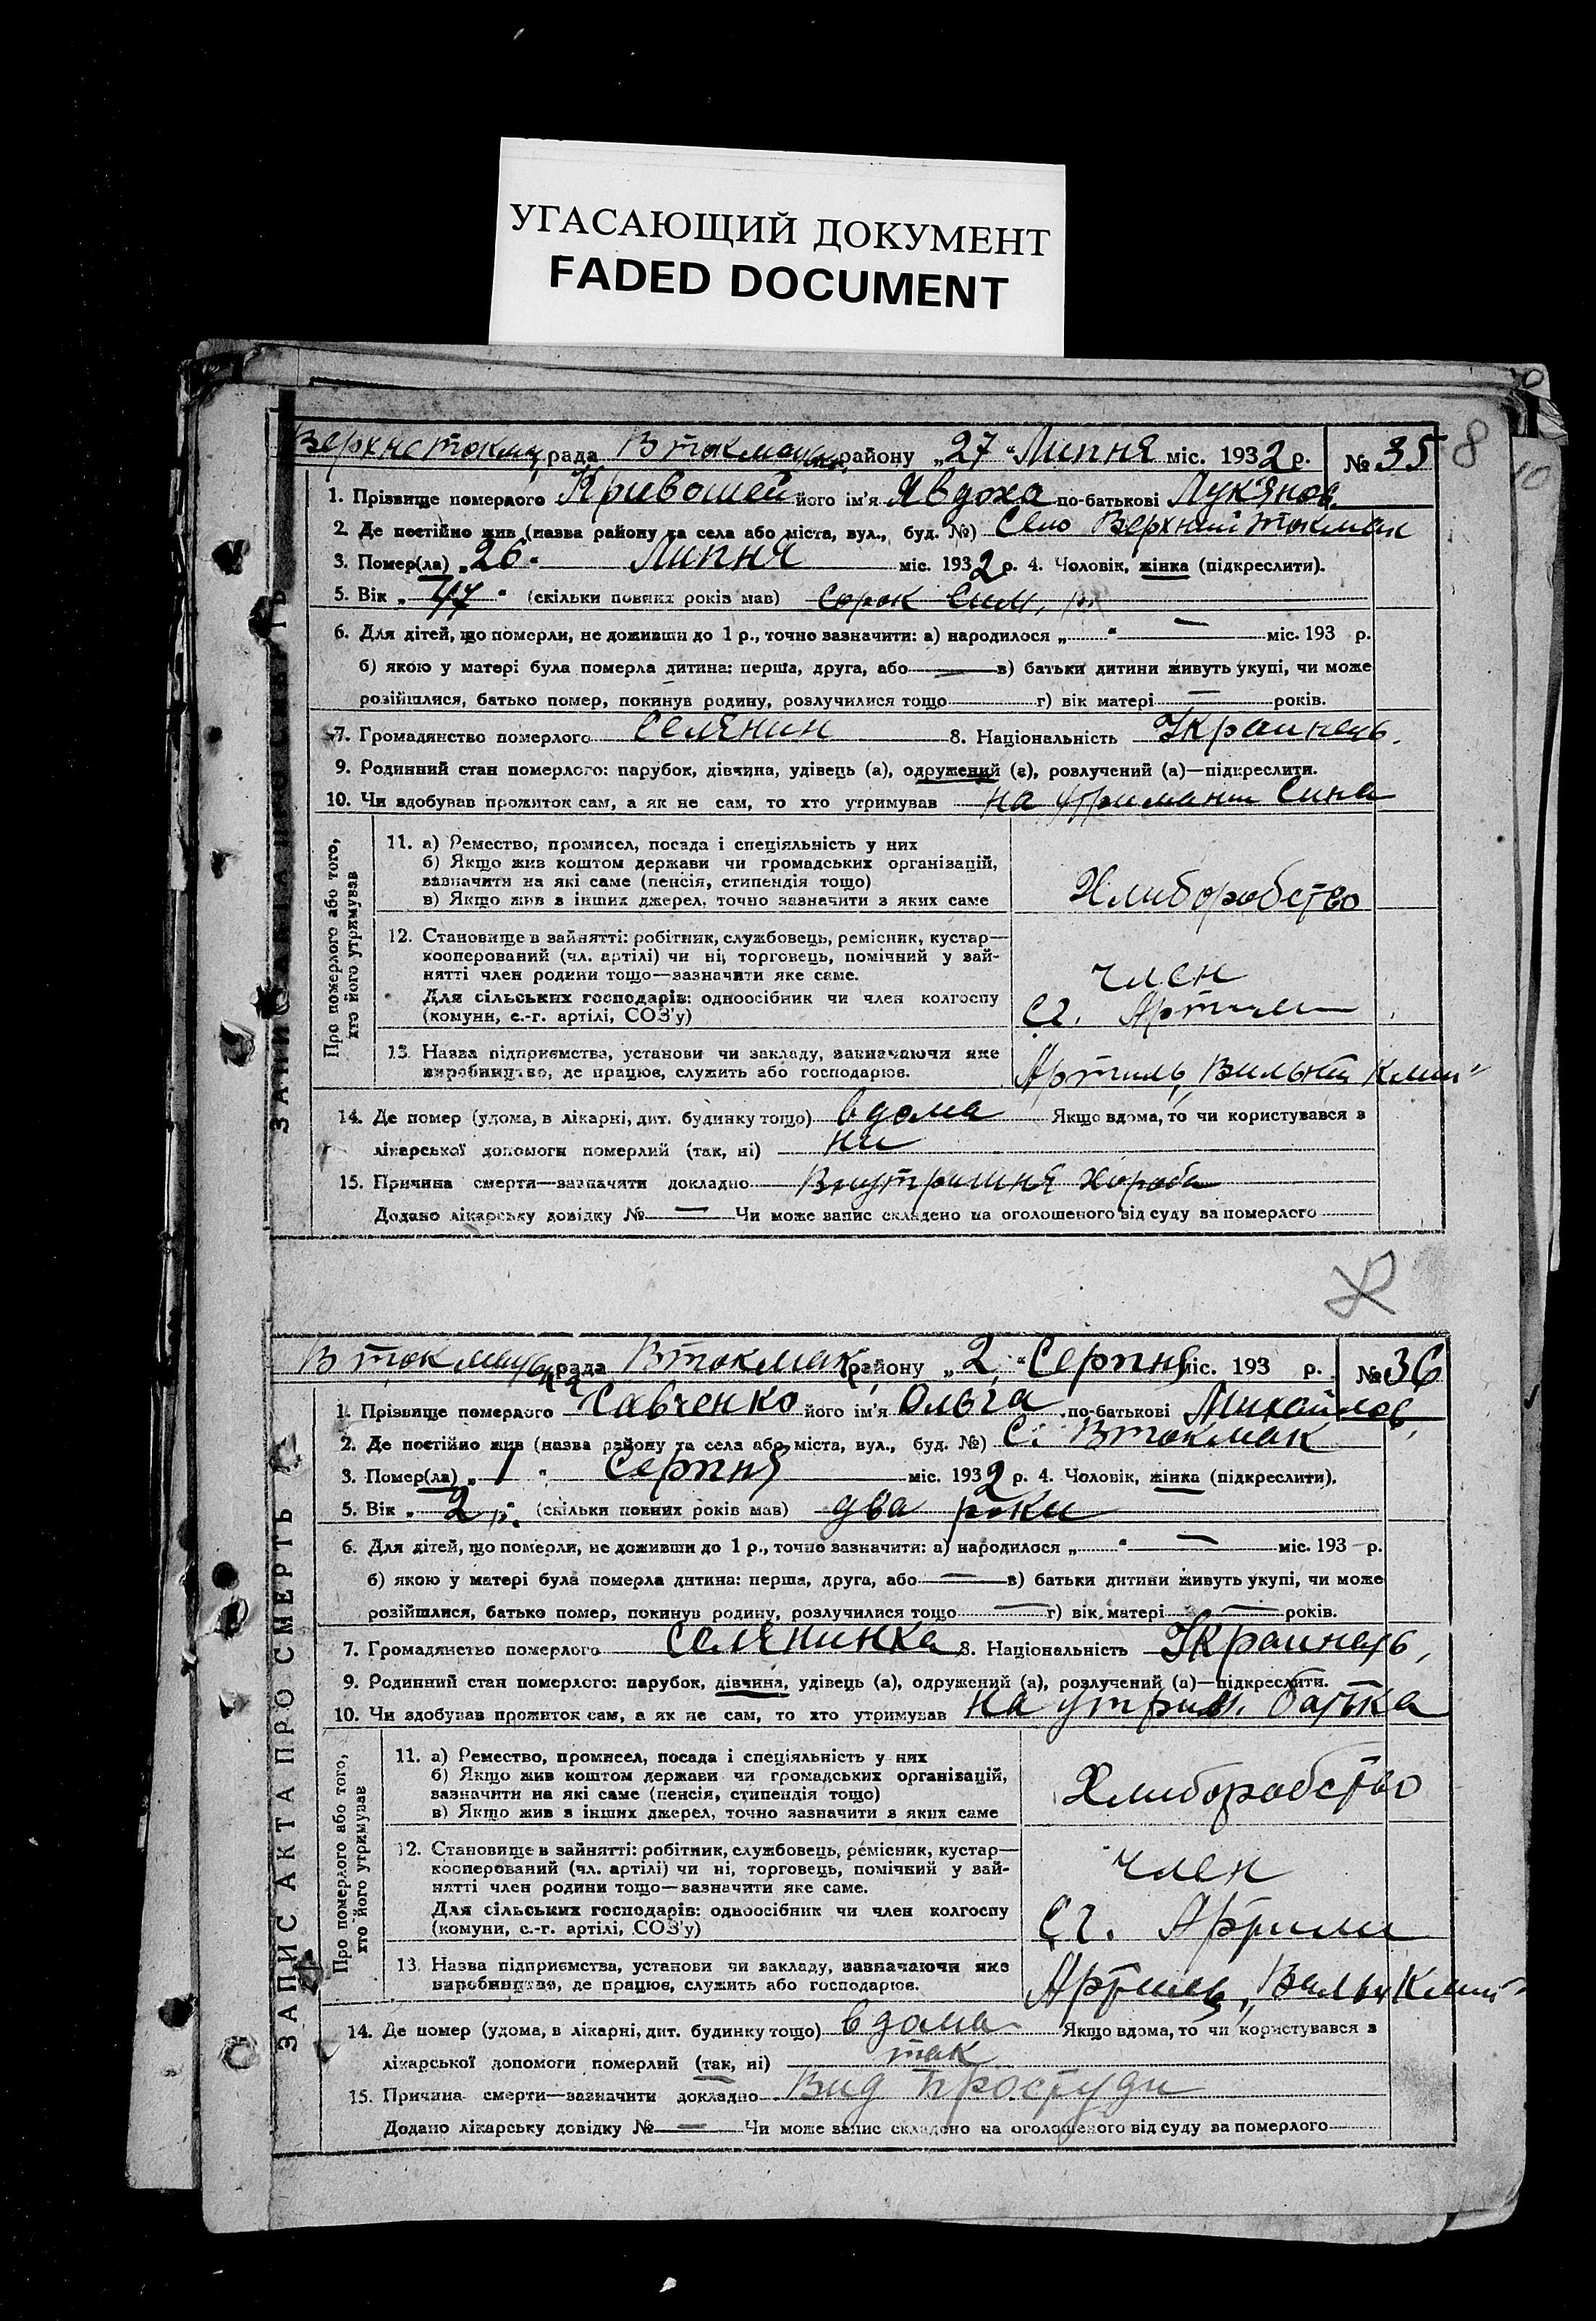 УГАСАЮЩИЙ ДОКУМЕНТ
FADED DOCUMENT
8
10
ЗАПИС АКТА ПРО СМЕРТЬ
Верхнетокма, рада В токмацьк. району „27“ Липня міс. 1932 р. № 35
1. Прізвище померлого Кривошей його ім'я Явдоха по-батькові Лук'янов.
2. Де постійно жив (назва району та села або міста, вул., буд. №) Село Верхний токмак
3. Помер(ла) „26“ Липня міс. 1932 р. 4. Чоловік, жінка (підкреслити).
5. Вік „47“ (скільки повних років мав) сорок сим, р.
6. Для дітей, що померли, не доживши до 1 р., точно зазначити: а) народилося „ “ — міс. 193 р.
б) якою у матері була померла дитина: перша, друга, або — в) батьки дитини живуть укупі, чи може
розійшлися, батько помер, покинув родину, розлучилися тощо г) вік матері — років.
7. Громадянство померлого Селянин 8. Національність Украинець.
9. Родинний стан померлого: парубок, дівчина, удівець (а), одружений (а), розлучений (а)—підкреслити.
10. Чи здобував прожиток сам, а як не сам, то хто утримував на утримани Сина
Про померлого або того, хто його утримував
11. а) Ремество, промисел, посада і спеціяльність у них
б) Якщо жив коштом держави чи громадських організацій,
зазначити на які саме (пенсія, стипендія тощо)
в) Якщо жив з інших джерел, точно зазначити з яких саме
Хлиборобство
12. Становище в зайнятті: робітник, службовець, ремісник, кустар—
кооперований (чл. артілі) чи ні, торговець, помічний у зай-
нятті член родини тощо—зазначити яке саме.
Для сільських господарів: одноосібник чи член колгоспу
(комуни, с.-г. артілі, СОЗ'у)
член
СГ. Артили
13. Назва підприємства, установи чи закладу, зазначаючи яке
виробництво, де працює, служить або господарює.
Артиль,
14. Де помер (удома, в лікарні, дит. будинку тощо) вдома Якщо вдома, то чи користувався з
лікарської допомоги померлий (так, ні) ни
15. Причина смерти—зазначити докладно Внутришня хороба
Додано лікарську довідку № — Чи може запис складено на оголошеного від суду за померлого
ЗАПИС АКТА ПРО СМЕРТЬ
В токмацька рада Втокмак, району „2“ Серпня міс. 193 р. № 36
1. Прізвище померлого Савченко його ім'я Ольга по-батькові Михайлов,
2. Де постійно жив (назва району та села або міста, вул., буд. №) С. Втокмак
3. Помер(ла) „1“ Серпня міс. 1932 р. 4. Чоловік, жінка (підкреслити).
5. Вік „2 р.“ (скільки повних років мав) два роки
6. Для дітей, що померли, не доживши до 1 р., точно зазначити: а) народилося „ “ — міс. 193 — р.
б) якою у матері була померла дитина: перша, друга, або — в) батьки дитини живуть укупі, чи може
розійшлися, батько помер, покинув родину, розлучилися тощо — г) вік матері — років.
7. Громадянство померлого Селянинка 8. Національність Украинець,
9. Родинний стан померлого: парубок, дівчина, удівець (а), одружений (а), розлучений (а)—підкреслити.
10. Чи здобував прожиток сам, а як не сам, то хто утримував на утрим. батька
Про померлого або того, хто його утримував
11. а) Ремество, промисел, посада і спеціяльність у них
б) Якщо жив коштом держави чи громадських організацій,
зазначити на які саме (пенсія, стипендія тощо)
в) Якщо жив з інших джерел, точно зазначити з яких саме
Хлиборобство
12. Становище в зайнятті: робітник, службовець, ремісник, кустар—
кооперований (чл. артілі) чи ні, торговець, помічний у зай-
нятті член родини тощо—зазначити яке саме.
Для сільських господарів: одноосібник чи член колгоспу
(комуни, с.-г. артілі, СОЗ'у)
член
СГ. Артили
13. Назва підприємства, установи чи закладу, зазначаючи яке
виробництво, де працює, служить або господарює.
Артиль,
14. Де помер (удома, в лікарні, дит. будинку тощо) вдома Якщо вдома, то чи користувався з
лікарської допомоги померлий (так, ні) так
15. Причина смерти—зазначити докладно Вид простуди
Додано лікарську довідку № — Чи може запис складено на оголошеного від суду за померлого